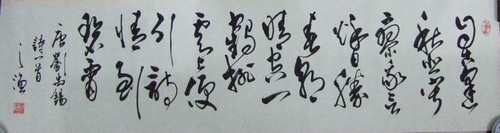 自古逢
秋悲寂
寥我言
秋日勝
春朝
晴空一
鶴排
雲上便
引詩
情到
碧霄
唐劉禹錫
詩一首